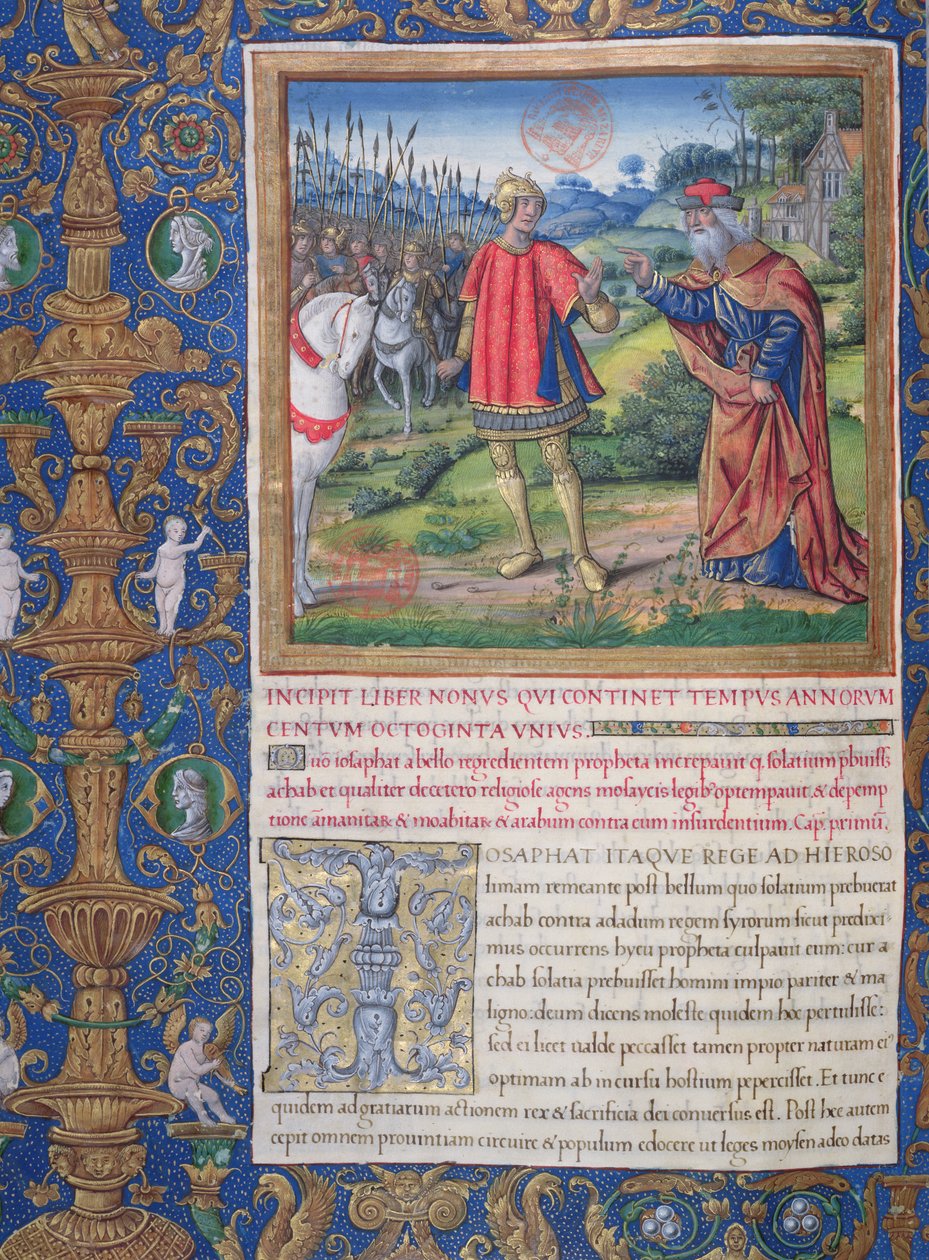 INCIPIT LIBER NONVS QVI CONTINET TEMPVS ANNORVM
CENTVM OCTOGINTA VNIVS.
Quō iosaphat a bello regredientem propheta increpauit q, solatium p̱buiss;
achab et qualiter decetero religiose agens mosaycis legib' optempauit & de pemp
tione āmanitaꝝ & moabitaꝝ & arabum contra eum insurdentium. Cap̄ primū.
IOSAPHAT ITAQVE REGE AD HIEROSO
limam remeante post bellum quo solatium prebuerat
achab contra adadum regem syrorum sicut predixi
mus occurrens hyeu propheta culpauit eum: cur a
chab solatia prebuisset homini impio pariter & ma
ligno: deum dicens moleste quidem hoc pertulisse:
sed ei licet ualde peccasset tamen propter naturam ei'
optimam ab incursu hostium pepercisset. Et tunc e
quidem ad gratiarum actionem rex & sacrificia dei conuersus est. Post hęc autem
cepit omnem prouintiam circuire & populum edocere ut leges moysen a deo datas